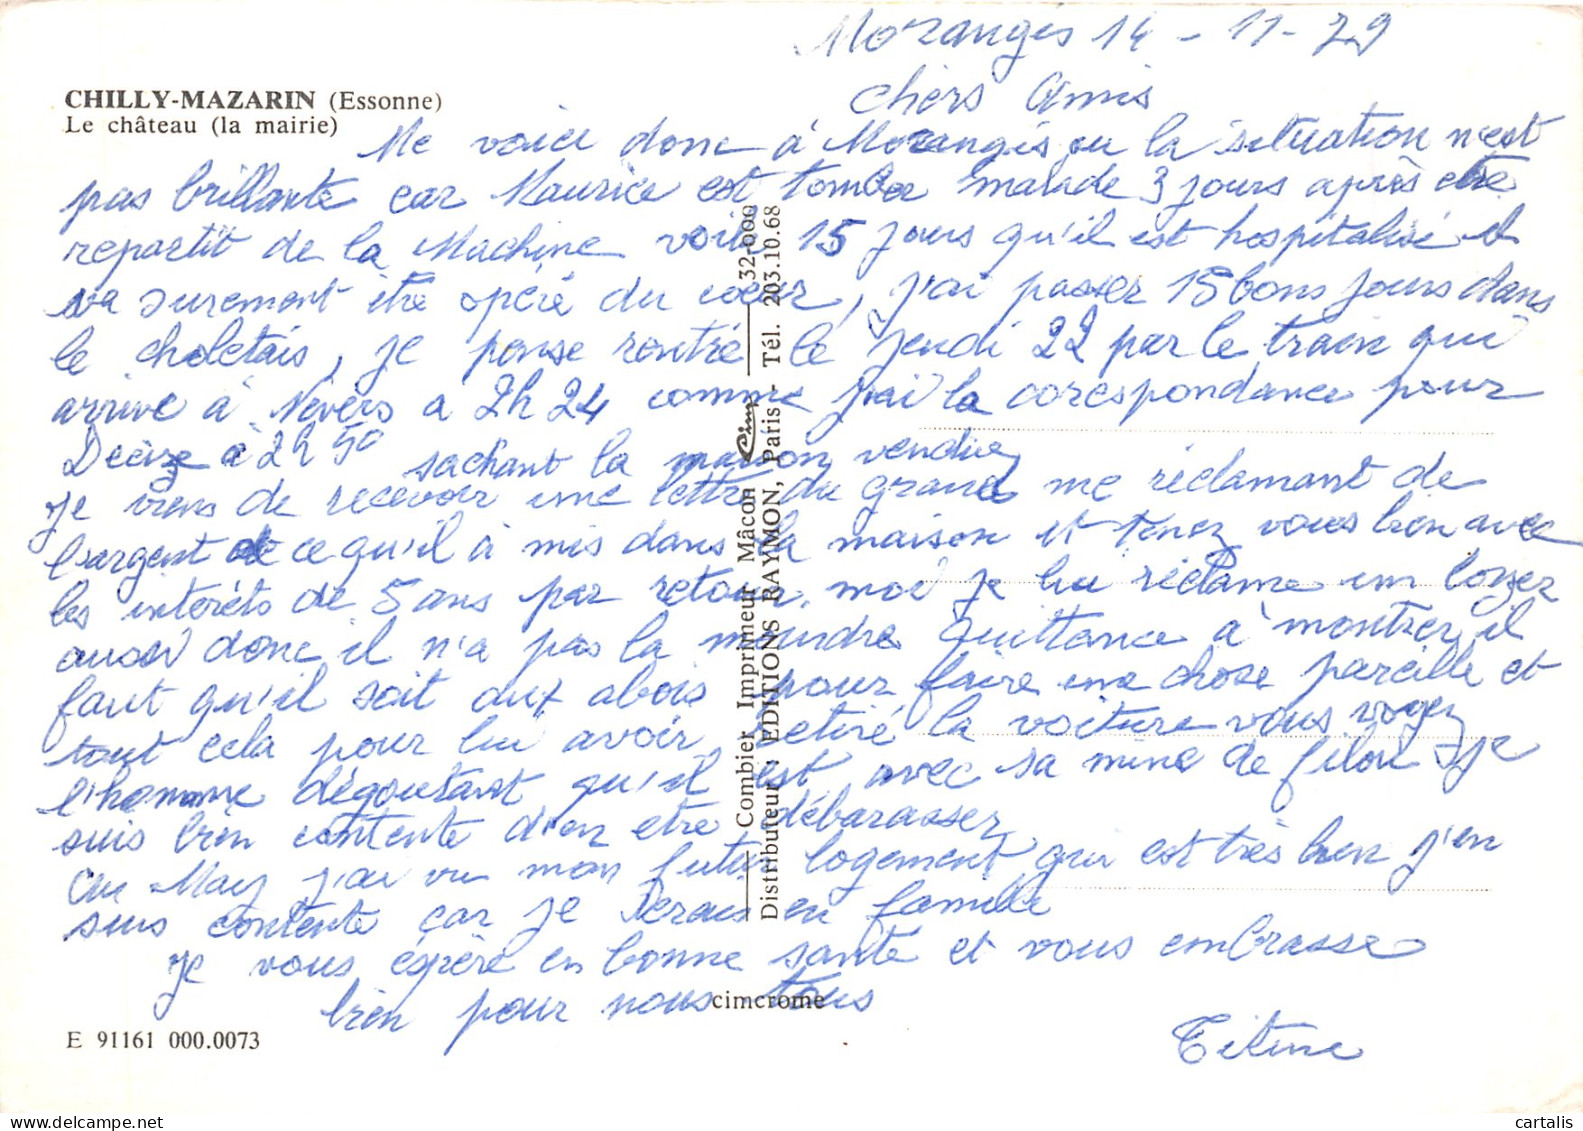 Morangis 14 - 11 - 79
CHILLY-MAZARIN (Essonne)
Le château (la mairie)
chers Amis
Me voici donc à Morangis ou la situation n'est
pas brillante car Maurice est tomber malade 3 jours après etre
repartit de la Machine voila 15 jours qu'il est hospitalisé il
va surement être opéré du coeur, j'ai passer 15 bons jours dans
le choletais, je pense rentré le jeudi 22 par le train qui
arrive à Nevers a 2h 24 comme j'ai la corespondance pour
Decize à 2h 50 sachant la maison vendue
je viens de recevoir une lettre du grand me réclamant de
l'argent de ce qu'il à mis dans la maison et tenez vous bien avec
les interéts de 5 ans par retour, moi je lui réclame un loyer
aussi donc il n'a pas la moindre quittance à montrer, il
faut qu'il soit aux abois pour faire une chose pareille et
tout cela pour lui avoir retiré la voiture vous voyez
l'homme dégoutant qu'il est avec sa mine de filou je
suis bien contente d'en etre débarasser
Au May j'ai vu mon futur logement qui est très bien j'en
suis contente car je serais en famille
Je vous espère en bonne santé et vous embrasse
bien pour nous tous
Titine
E 91161 000.0073
cimcrome
Combier Imprimeur Mâcon Cim 32.000
Distributeur : EDITIONS RAYMON, Paris - Tél. 203.10.68
cartalis